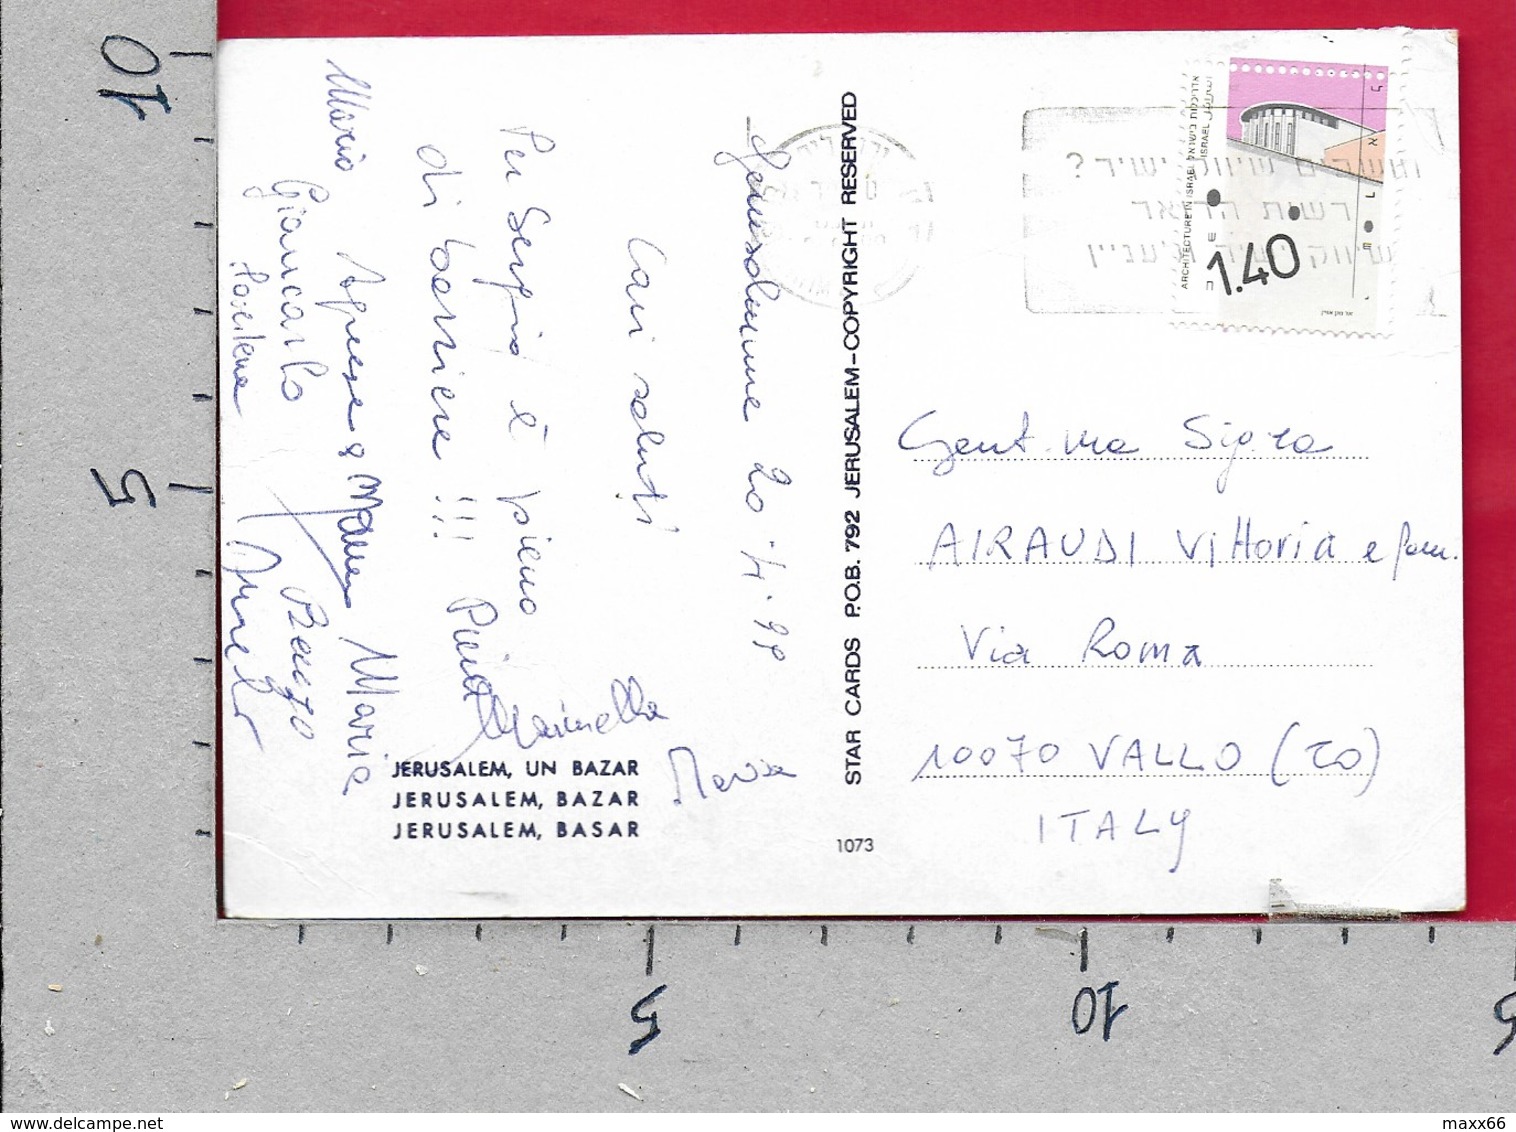 Gerusalemme 20-4-98
Cari saluti
Per Sergio è pieno
di barriere !!!
Piera
Marinella
Maria
Mario Agnese & Maria
Giancarlo Renzo
JERUSALEM, UN BAZAR
JERUSALEM, BAZAR
JERUSALEM, BASAR
STAR CARDS P.O.B. 792 JERUSALEM-COPYRIGHT RESERVED
1073
אדריכלות בישראל
ARCHITECTURE IN ISRAEL
ISRAEL
1.40
רשות הדואר
Gent.ma Sig.ra
AIRAUDI Vittoria e fam.
Via Roma
10070 VALLO (TO)
ITALY
10
5
5
10
5
www.delcampe.net
maxx66